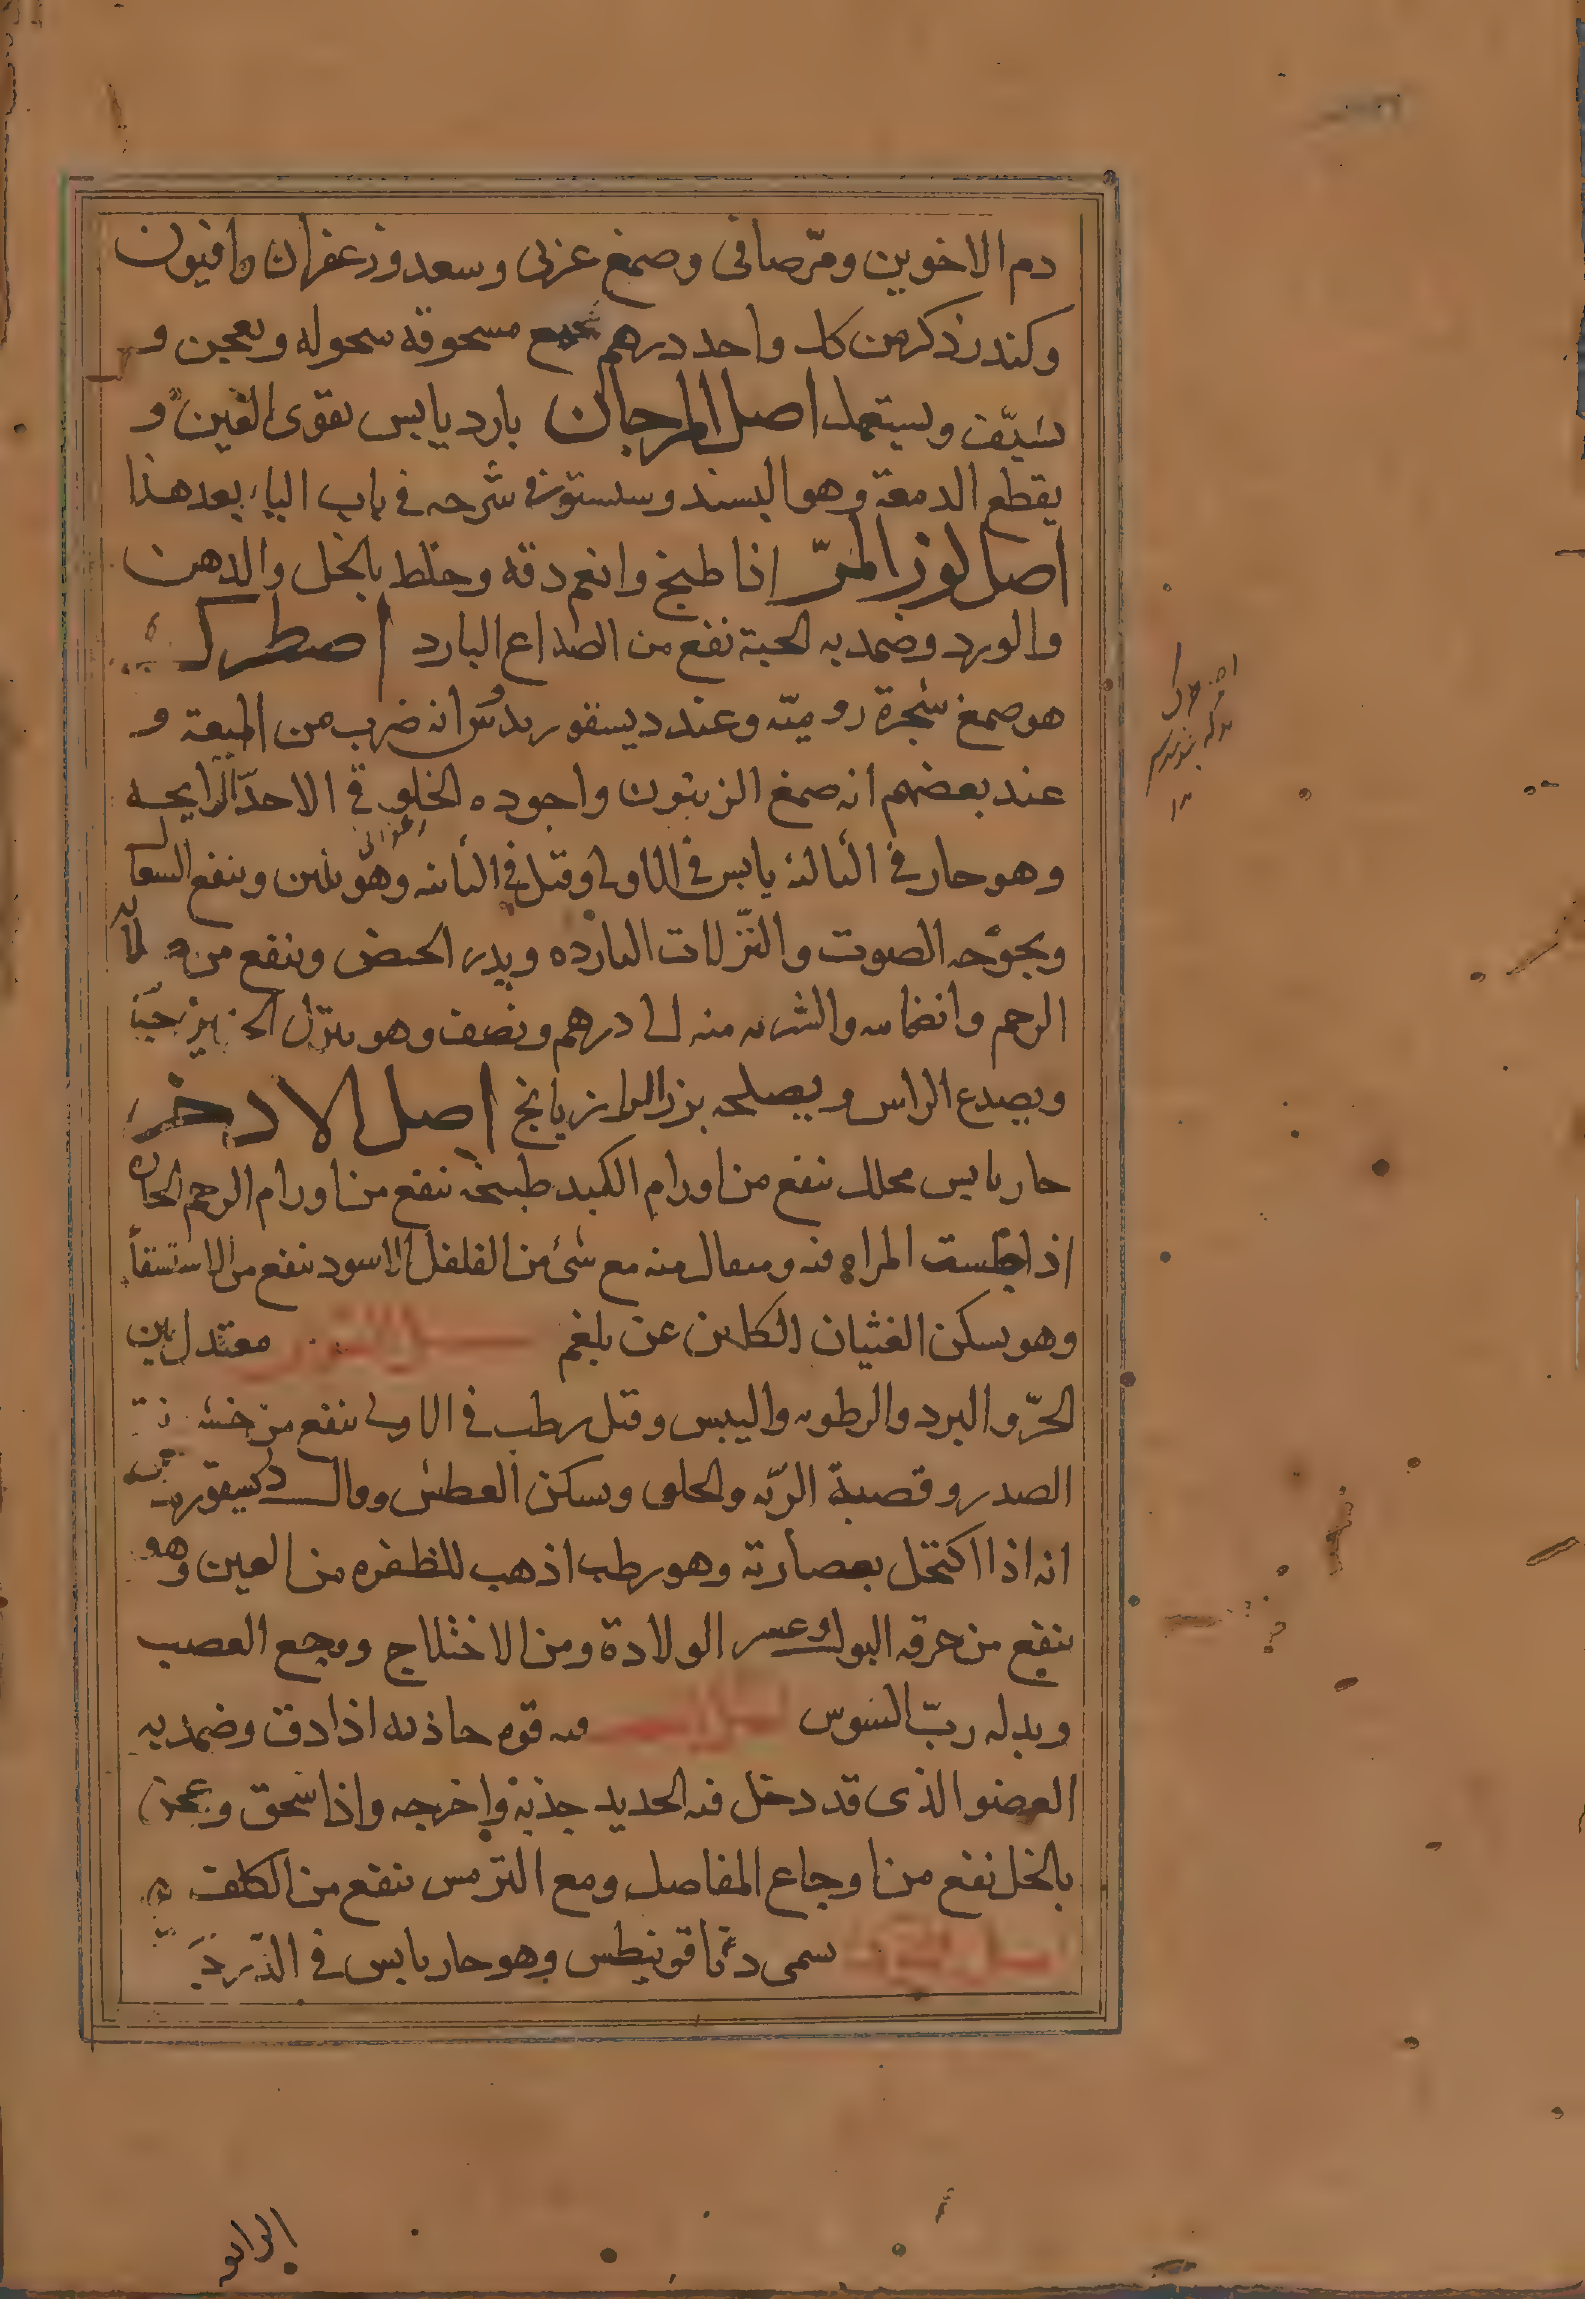 دم الاخوين ومرّ صافى وصمغ عربى وسعد وزعفران وافيون
وكندر ذكر من كل واحد درهم تجمع مسحوقه منخوله وتعجن و
تشيّف وتستعمل اصل المرجان بارد يابس يقوى العين و
يقطع الدمعة وهو البسد وسنستوفى شرحه فى باب الباء بعد هذا
اصل لوز المرّ اذا طبخ وانعم دقه وخلط بالخل والدهن
والورد وضمد به الجبهة نفع من الصداع البارد اصطرك
هو صمغ شجرة روميّه وعند ديسقوريدوس انه ضرب من الميعة و
عند بعضهم انه صمغ الزيتون واجوده الحاد الرايحه
وهو حار فى الثالثه يابس فى الاولى وقيل فى الثانيه وهو يلين وينفع السعال
وبحوحه الصوت والنّزلات البارده ويدر الحيض وينفع من
الرحم وانضمامه والشربه منه الى درهم ونصف وهو
ويصدع الراس ويصلحه بزر الرازيانج اصل الاذخر
حار يابس محلل ينفع من اورام الكبد طبيخه ينفع من اورام الرحم الحاره
اذا جلست المراه فيه ومثقال منه مع شئ من الفلفل الاسود ينفع من الاستسقاء
وهو يسكن الغثيان الكاين عن بلغم اصل السوس معتدل بين
الحرّ والبرد والرطوبه واليبس وقيل رطب فى الاولى ينفع من خشونة
الصدر وقصبة الريّه والحلق ويسكن العطش وقال ديسقوريدس
انه اذا اكتحل بعصارته وهو رطب اذهب للظفره من العين وهو
ينفع من حرقه البول وعسر الولادة ومن الاختلاج ووجع العصب
وبدله ربّ السوس فيه قوه جاذبه اذا دق وضمد به
العضو الذى قد دخل فيه الحديد جذبه واخرجه واذا سحق وعجن
بالخل نفع من اوجاع المفاصل ومع الترمس ينفع من الكلف
يسمى وهو حار يابس فى